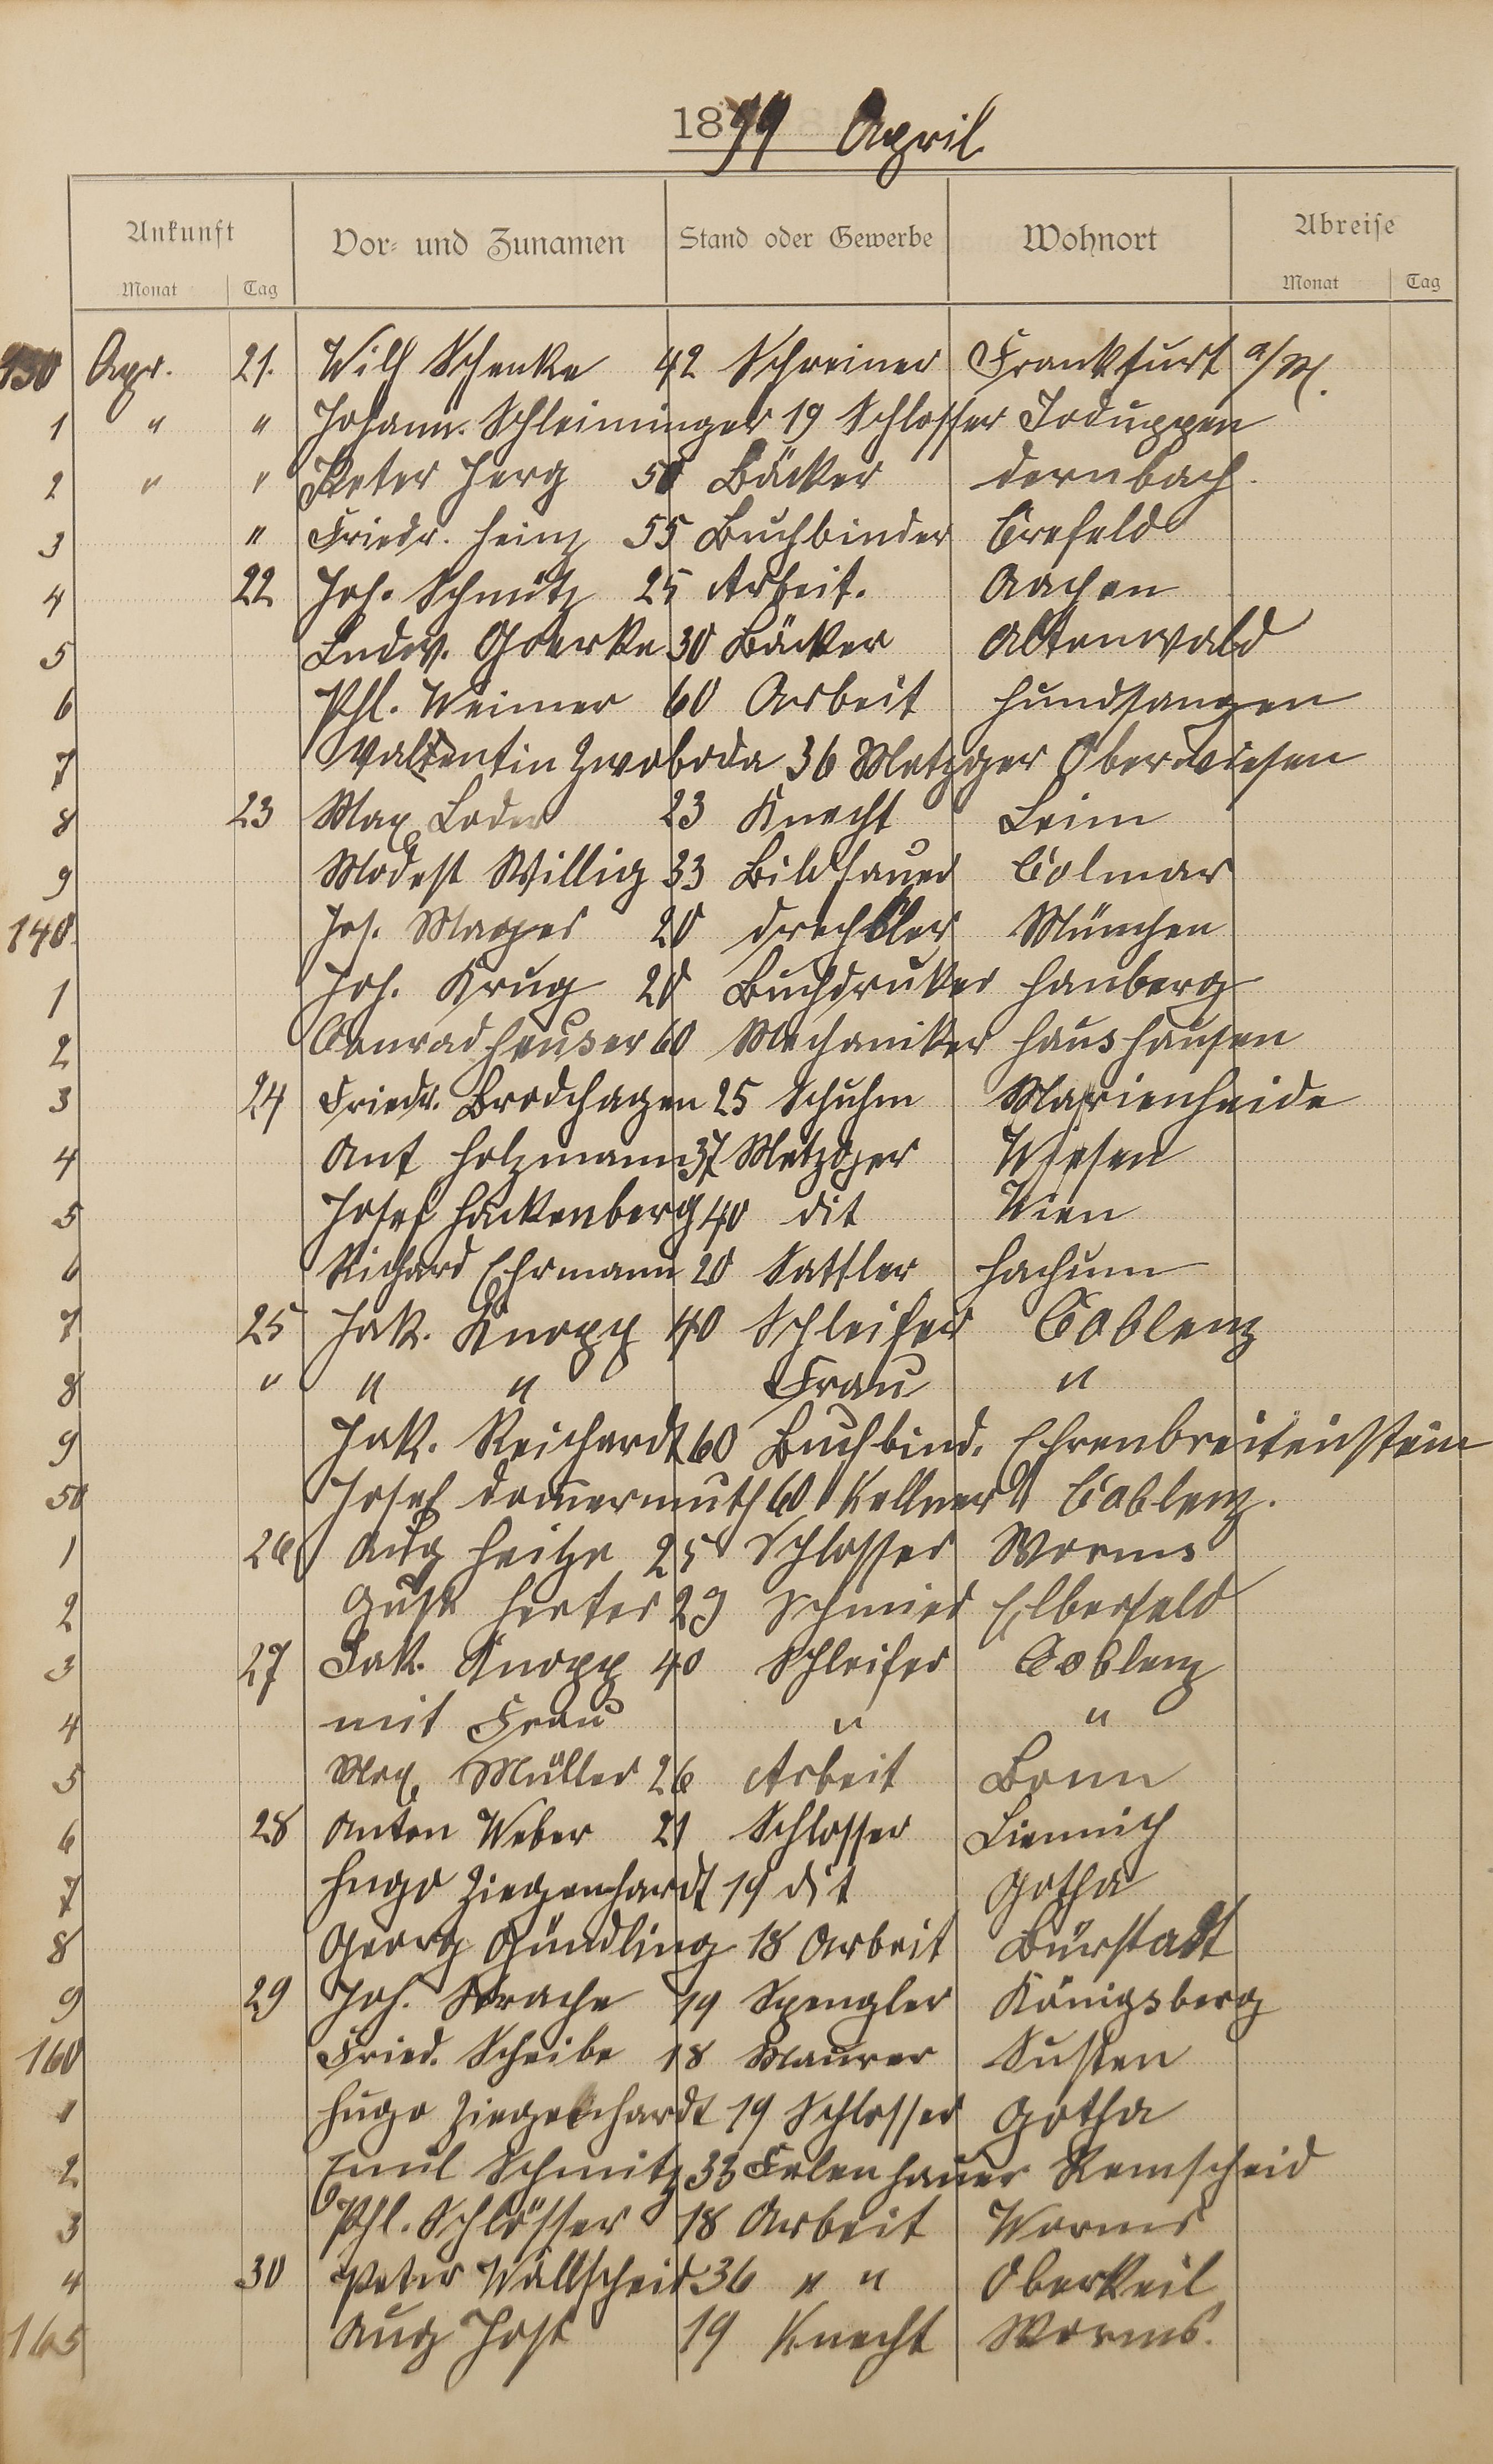 1899 April
Ankunft Vor- und Zunamen Stand oder Gewerbe Wohnort Abreise
Monat Tag Monat Tag
130 Apr. 21. Will Schenke 42 Schreiner Frankfurt a/M.
1 " " Johann Schleiminger 19 Schlosser
2 " " Peter Herg 50 Bäcker Dernbach.
3 " Friedr. Heinz 55 Buchbinder Crefeld
4 22 Joh. Schmitz 25 Arbeit. Aachen
5 Ludw. Goerke 30 Bäcker Altenwald
6 Phl. Weimer 60 Arbeit Hundsangen
7 Valentin Zwoboda 36 Metzger Oberwiesen
8 23 Max Loder 23 Knecht Leim
9 Modest Willig 33 Bildhauer Colmar
140 Jos. Mayer 20 Drechsler München
1 Joh. Krug 20 Buchdrucker Hanberg
2 Conrad Heuser 60 Mechaniker Haushausen
3 24 Friedr. Brodhagen 25 Schuhm Marienheide
4 Ant Holzmann 37 Metzger Wiesen
5 Josef Hackenberg 40 dit Wien
6 Richard Ehrmann 20 Sattler Hachum
7 25 Jak. Knopp 40 Schleifer Coblenz
8 " " " Frau "
9 Jak. Reichardt 60 Buchbind. Ehrenbreitenstein
50 Josef Dauermuth 60 Kellner Coblenz.
1 26 Aug Heitze 25 Schlosser Worms
2 Gust Herter 29 Schmied Elberfeld
3 27 Jak. Knopp 40 Schleifer Coblenz
4 mit Frau " "
5 Max Müller 26 Arbeit Bonn
6 28 Anton Weber 21 Schlosser Liennich
7 Hugo Ziegenhardt 19 dit Gotha
8 Georg Gündling 18 Arbeit Bürstadt
9 29 Joh. 19 Spengler Königsberg
160 Fried. Scheibe 18 Maurer Susten
1 Hugo Ziegenhardt 19 Schlosser Gotha
2 Emil Schmitz 33 Feilenhauer Remscheid
3 Phl. Schlösser 18 Arbeit Worms
4 30 Peter Wallscheid 36 " " Oberkeil
165 Aug Jost 19 Knecht Worms.